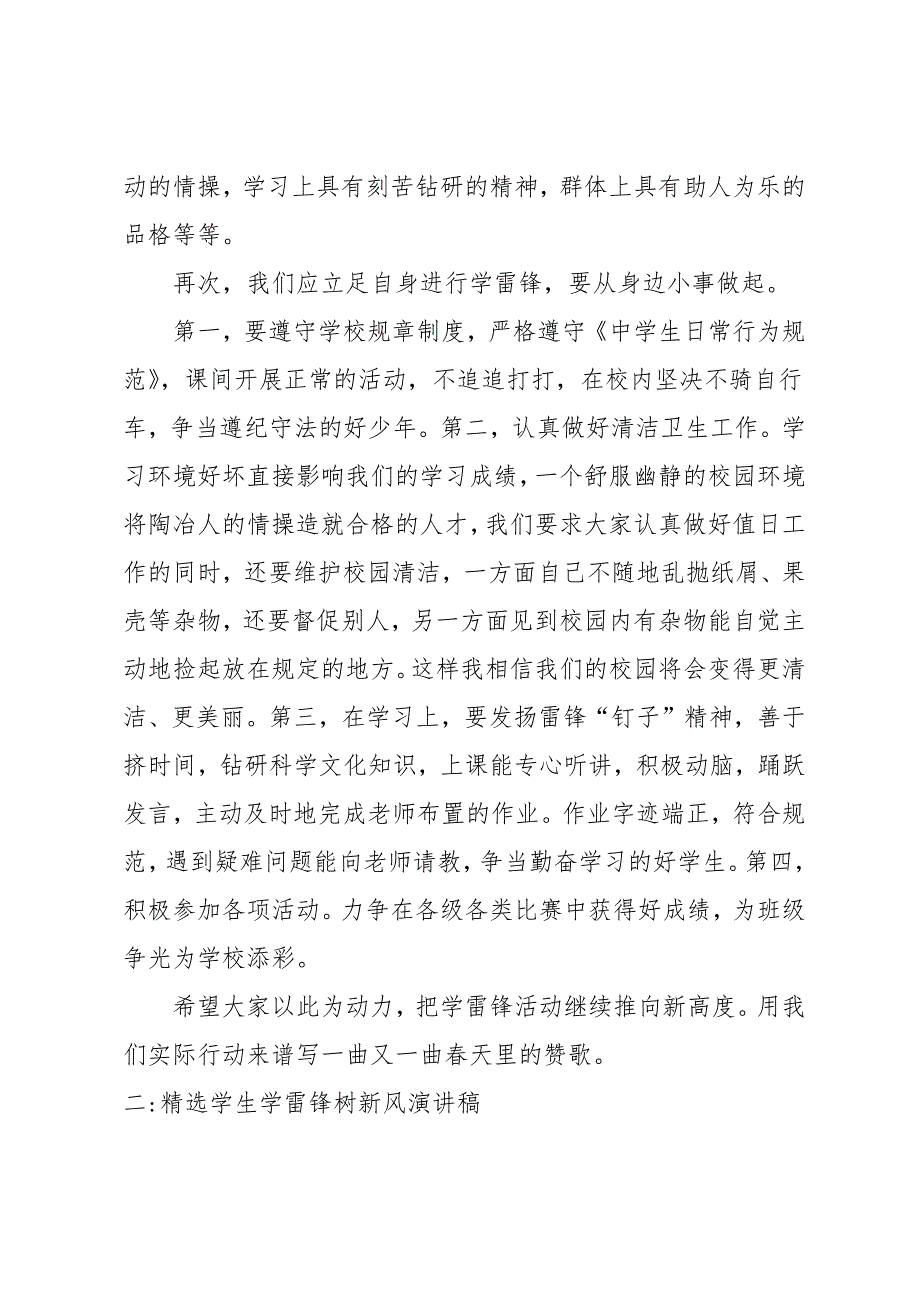 动的情操，学习上具有刻苦钻研的精神，群体上具有助人为乐的
品格等等。
再次，我们应立足自身进行学雷锋，要从身边小事做起。
第一，要遵守学校规章制度，严格遵守《中学生日常行为规
范》，课间开展正常的活动，不追追打打，在校内坚决不骑自行
车，争当遵纪守法的好少年。第二，认真做好清洁卫生工作。学
习环境好坏直接影响我们的学习成绩，一个舒服幽静的校园环境
将陶冶人的情操造就合格的人才，我们要求大家认真做好值日工
作的同时，还要维护校园清洁，一方面自己不随地乱抛纸屑、果
壳等杂物，还要督促别人，另一方面见到校园内有杂物能自觉主
动地捡起放在规定的地方。这样我相信我们的校园将会变得更清
洁、更美丽。第三，在学习上，要发扬雷锋“钉子”精神，善于
挤时间，钻研科学文化知识，上课能专心听讲，积极动脑，踊跃
发言，主动及时地完成老师布置的作业。作业字迹端正，符合规
范，遇到疑难问题能向老师请教，争当勤奋学习的好学生。第四，
积极参加各项活动。力争在各级各类比赛中获得好成绩，为班级
争光为学校添彩。
希望大家以此为动力，把学雷锋活动继续推向新高度。用我
们实际行动来谱写一曲又一曲春天里的赞歌。
二:精选学生学雷锋树新风演讲稿